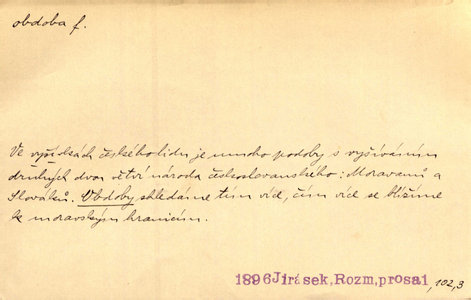 obdoba f.
Ve výšivkách českého lidu je mnoho podoby s vyšíváním
druhých dvou čtví národa československého: Moravanů a
Slováků. Obdoby shledáme tím více, čím více se blížíme
k moravským hranicím.
1896 Jirásek, Rozm, prosa1 ,102,3